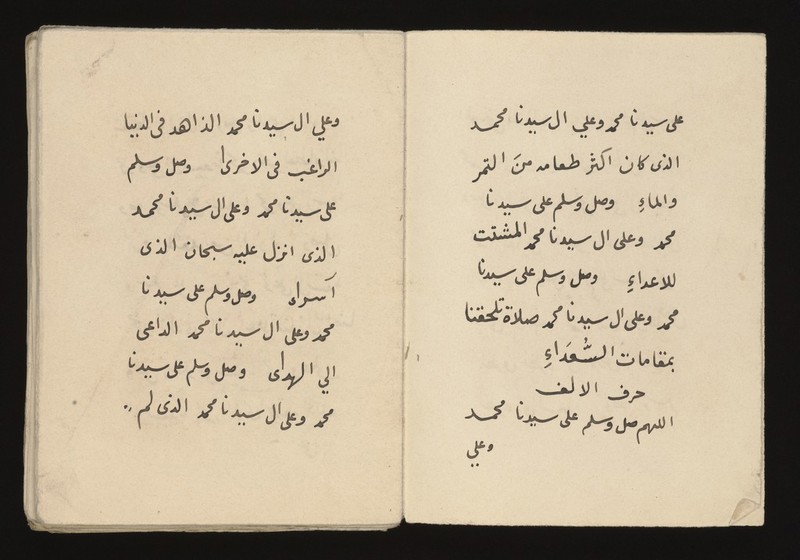 على سيدنا محمد وعلي ال سيدنا محمد
الذى كان اكثر طعامه منَ التمر
والماءِ وصل وسلم على سيدنا
محمد وعلى ال سيدنا محمد المشتت
للاعداءِ وصل وسلم على سيدنا
محمد وعلى ال سيدنا محمد صلاة تلحقنا
بمقامات السُّعَداءِ
حرف الالف
اللهم صل وسلم على سيدنا محمد
وعلي
وعلي ال سيدنا محمد الزاهد فى الدنيا
الراغب فى الاخرى وصل وسلم
على سيدنا محمد وعلى ال سيدنا محمد
الذى انزل عليه سبحان الذى
آسرا وصل وسلم على سيدنا
محمد وعلى ال سيدنا محمد الداعى
الي الهدى وصل وسلم على سيدنا
محمد وعلى ال سيدنا محمد الذى لم